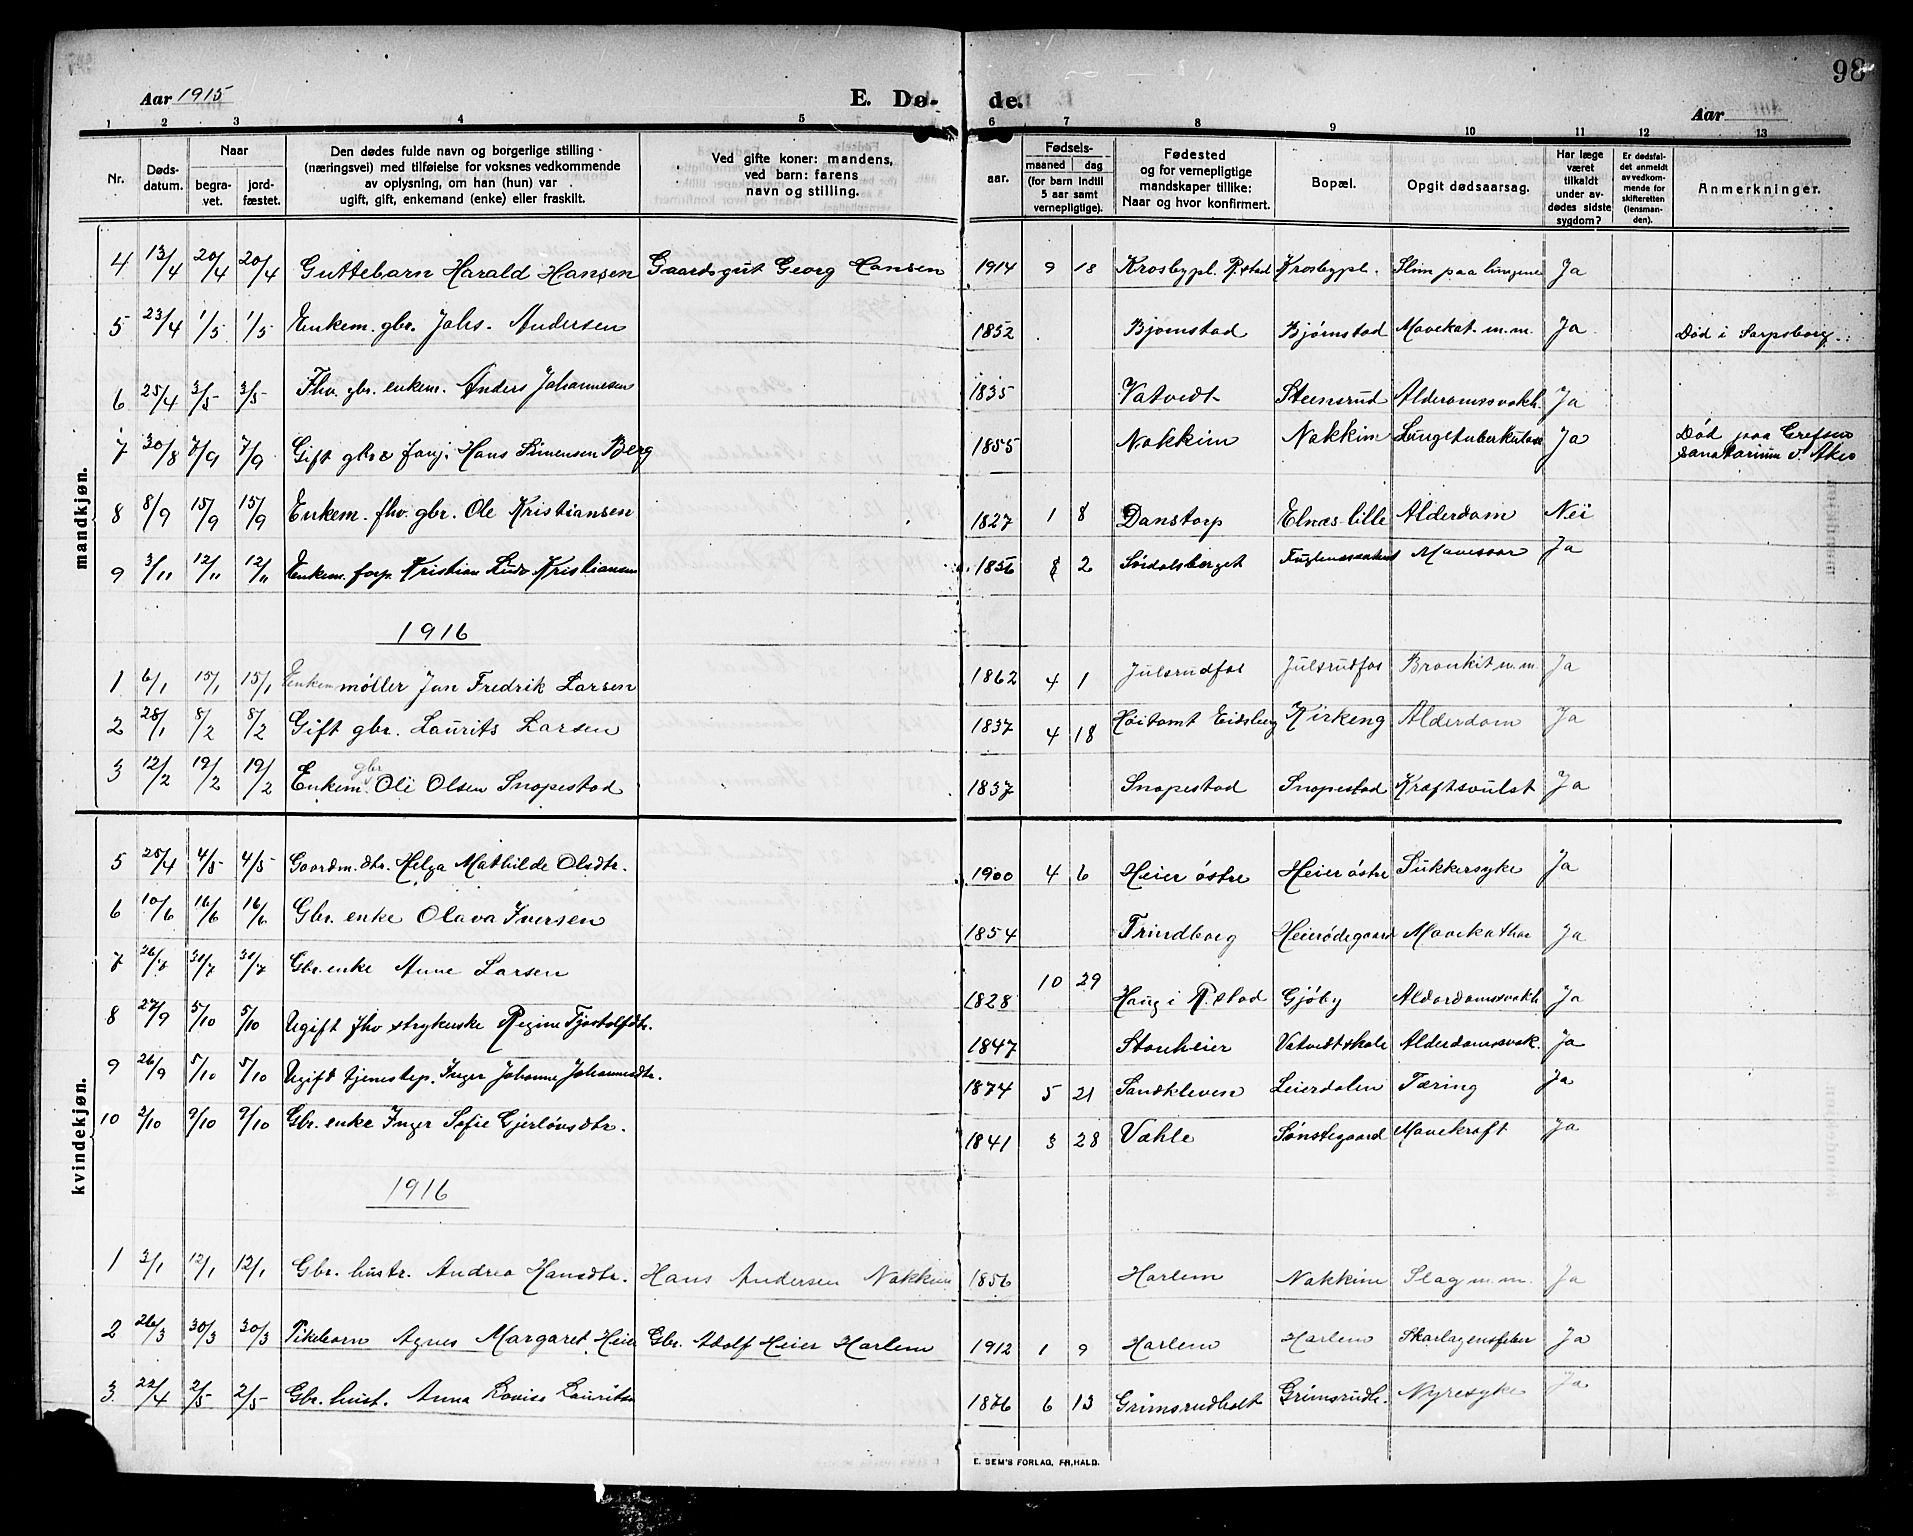 98
Aar 1915 E. Dø- de. Aar
1 2 3 4 5 6 7 8 9 10 11 12 13
Nr. Døds-datum. Naar begra-vet. jord-fæstet. Den dødes fulde navn og borgerlige stilling (næringsvei) med tilføielse for voksnes vedkommende av oplysning, om han (hun) var ugift, gift, enkemand (enke) eller fraskilt. Ved gifte koner: mandens, ved barn: farens navn og stilling. Fødsels- aar. maaned dag (for barn indtil 5 aar samt vernepligtige). Fødested og for vernepligtige mandskaper tillike: Naar og hvor konfirmert. Bopæl. Opgit dødsaarsag. Har læge været tilkaldt under av-dødes sidste sygdom? Er dødsfal-det anmeldt av vedkom-mende for skifteretten (lensman-den). Anmerkninger.
mandkjøn.
4 13/4 20/4 20/4 Guttebarn Harald Hansen Gaardsgut Georg Hansen 1914 9 18 Krosbypl. R.stad Krosbypl. Slim paa lungene Ja
5 23/4 1/5 1/5 Enkem. gbr. Johs. Andersen 1852 Bjørnstad Bjørnstad Mavekat. m.m. Ja Død i Sarpsborg.
6 25/4 3/5 3/5 Fhv. gbr. enkem. Anders Johannesen 1835 Vatvedt Steensrud Alderdomssvakh. Ja
7 30/8 7/9 7/9 Gift gbr. Hans Simensen Berg 1855 Nakkim Nakkim Lungetuberkulose Ja Død paa Grefsen
sanatorium v. Aker
8 8/9 15/9 15/9 Enkem. fhv. gbr. Ole Kristiansen 1827 1 8 Danstorp Elnæs lille Alderdom Nei
9 3/11 12/11 12/11 Enkem. forp. Kristian Ludv. Kristiansen 1856 2 Svidalsberget Mavesaar Ja
1916
1 6/1 15/1 15/1 Enkem møller Jan Fredrik Larsen 1862 4 1 Julsrudfos Julsrudfos Bronkit m.m. Ja
2 28/1 8/2 8/2 Gift gbr. Laurits Larsen 1837 4 18 Høitomt Eidsberg Kirkeng Alderdom Ja
3 12/2 19/2 19/2 Enkem. gbr Ole Olsen Snopestad 1837 Snopestad Snopestad Kræftsvulst Ja
kvindekjøn.
5 25/4 4/5 4/5 Gaardm. dtr. Helga Mathilde Olsdtr. 1900 4 6 Heier østre Heier østre Sukkersyke Ja
6 10/6 16/6 16/6 Gbr. enke Olava Iversen 1854 Trindborg Heierødegaard Mavekathar Ja
7 26/7 30/7 30/7 Gbr. enke Anne Larsen 1828 10 29 Haug i R.stad Gjøby Alderdomssvakh. Ja
8 27/9 5/10 5/10 Ugift fhv strykerske Regine Tjostolfsdtr. 1847 Stonheier Vatvedt skole Alderdomssvak. Ja
9 26/9 5/10 5/10 Ugift tjenestep. Inger Johanne Johannesdtr. 1874 5 21 Sandkleven Leierdalen Tæring Ja
10 2/10 9/10 9/10 Gbr. enke Inger Sofie Gjerløvsdtr. 1841 3 28 Vahle Sønstegaard Mavekræft Ja
1916
1 3/1 12/1 12/1 Gbr. hustr. Andrea Hansdtr. Hans Andersen Nakkim 1856 Harlem Nakkim Slag m.m. Ja
2 26/3 30/3 30/3 Pikebarn Agnes Margaret Heier Gbr. Adolf Heier Harlem 1912 1 9 Harlem Harlem Skarlagensfeber Ja
3 22/4 2/5 2/5 Gbr. hust. Anna Lovise Lauritsen 1876 6 13 Grimsrudholt Grimsrudh. Nyresyke Ja
E. SEM'S FORLAG, FR.HALD.